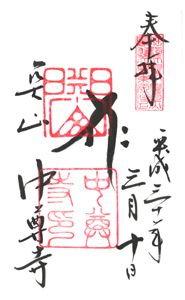 奉拝
平成三十年
三月十日
関山
中尊寺
中尊寺印